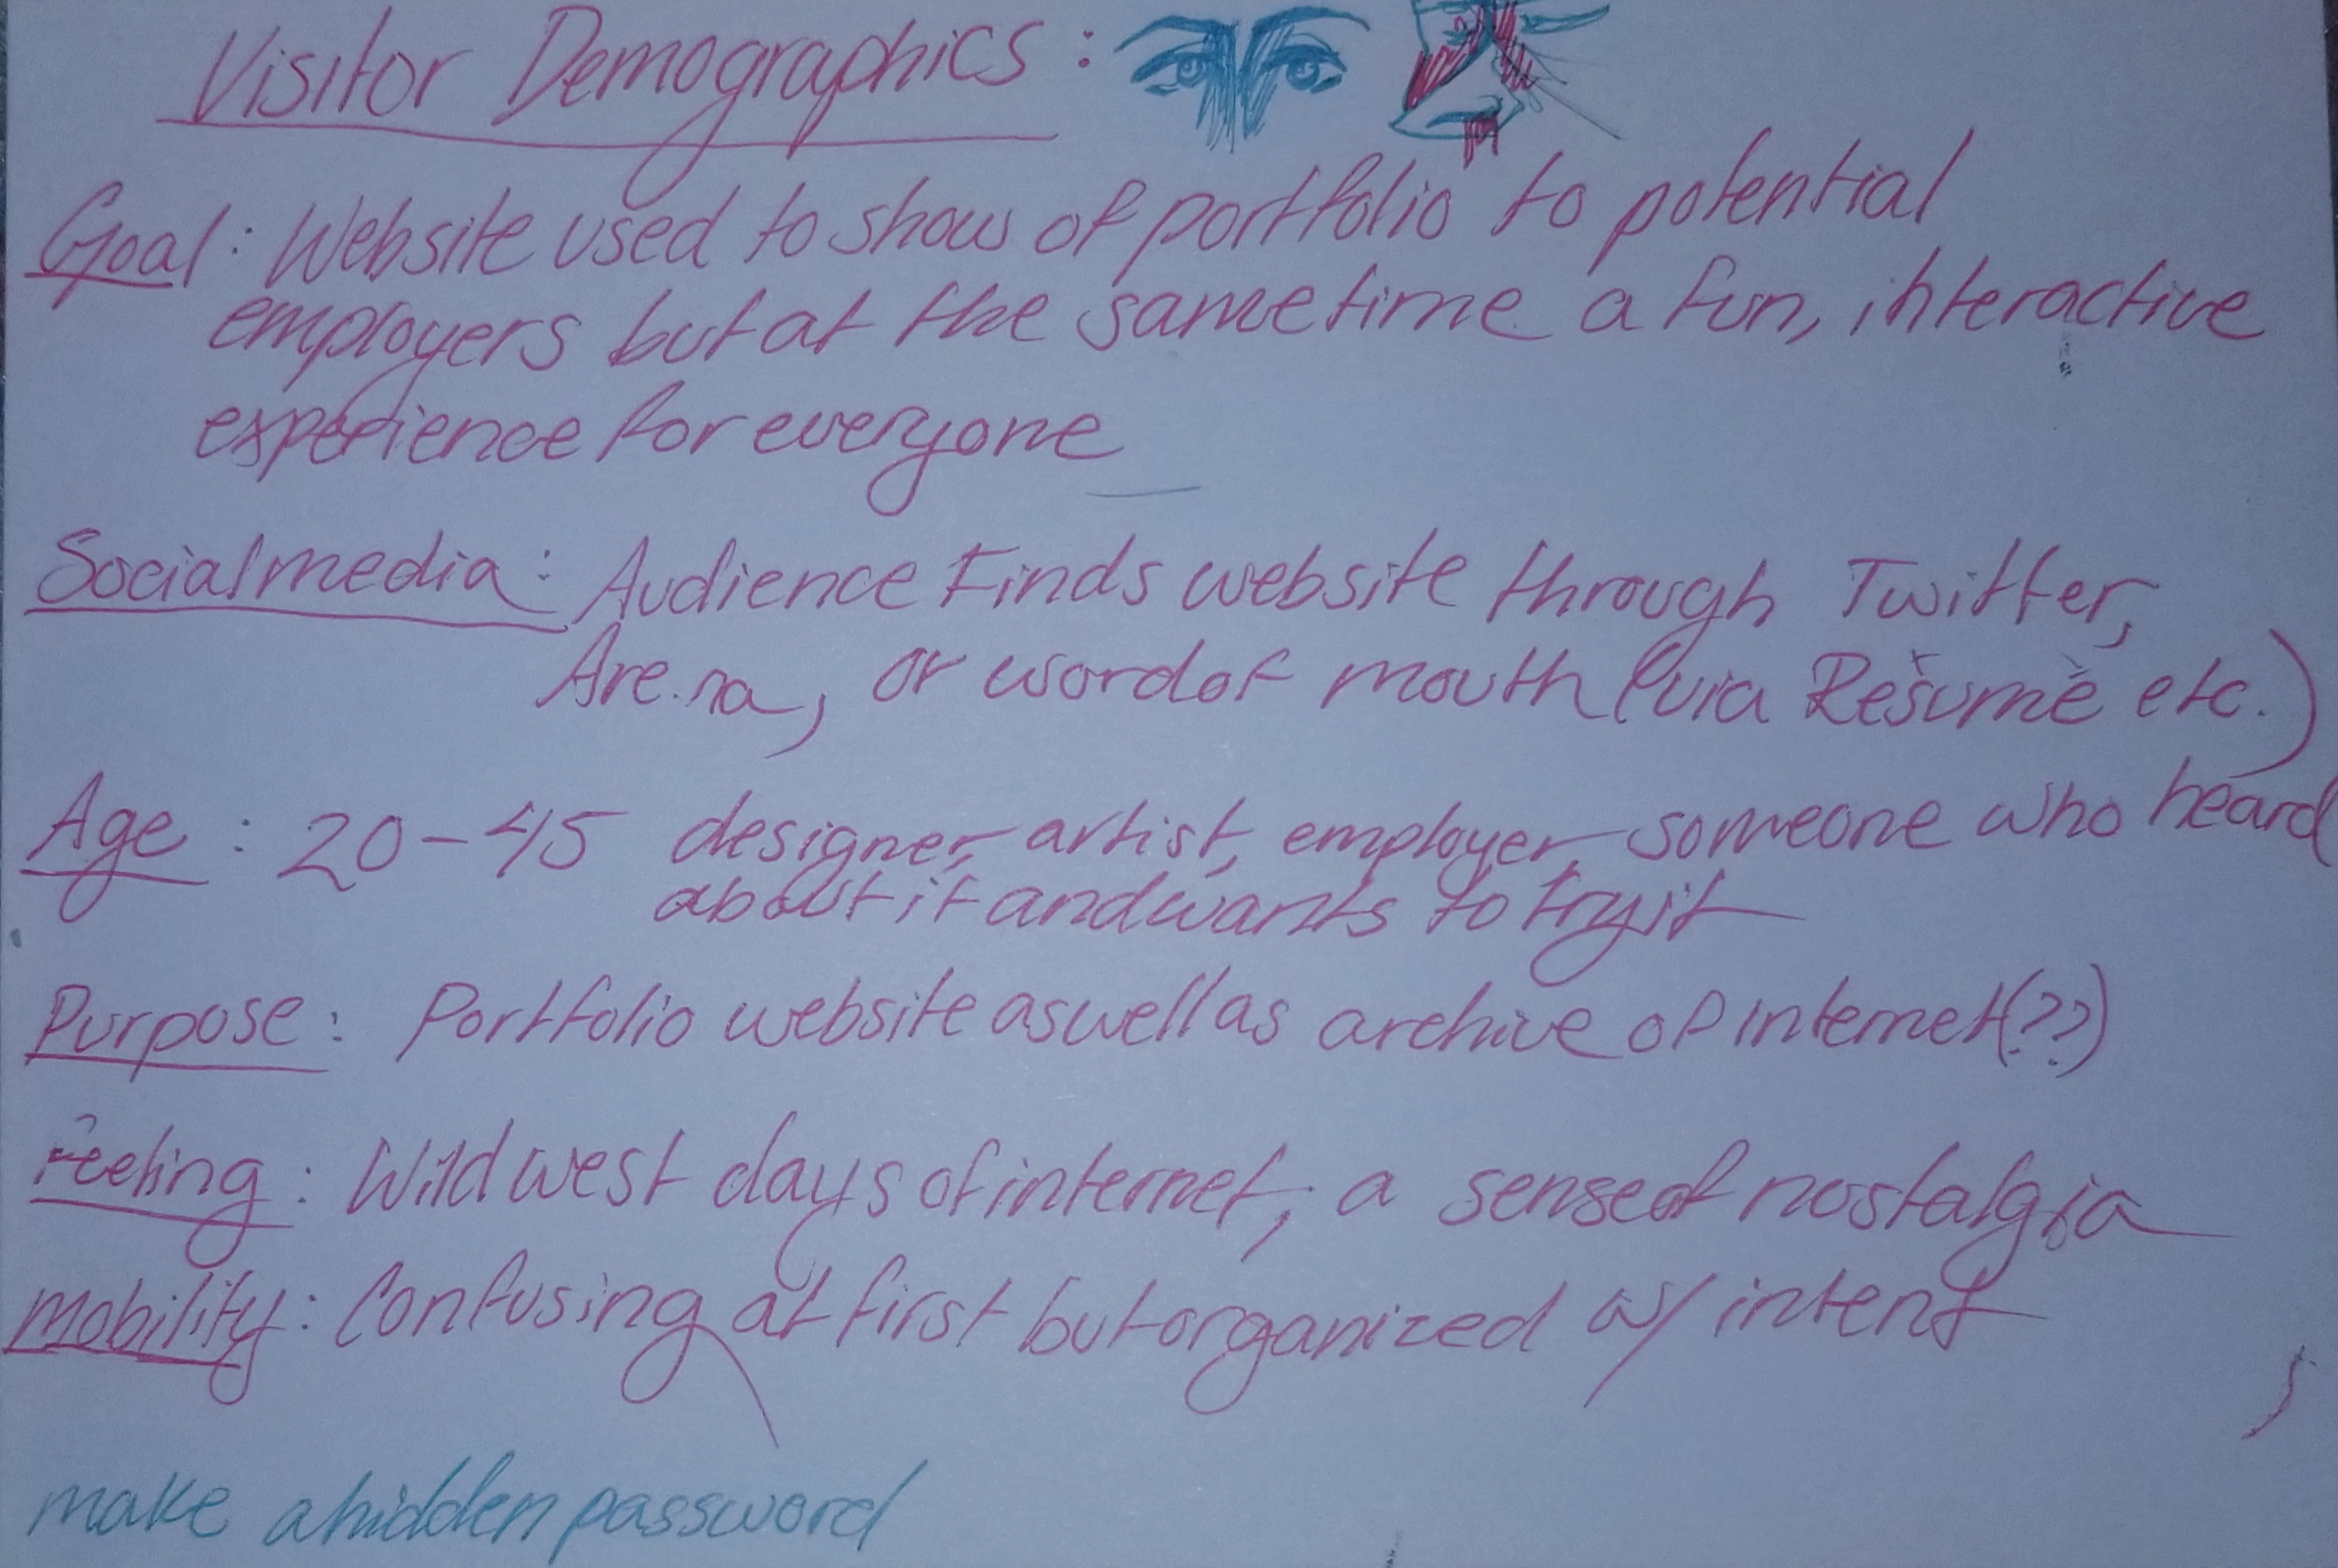 Visitor Demographics :
Goal : Website used to show of portfolio to potential
employers but at the same time a fun, interactive
experience for everyone
Social media : Audience Finds website through Twitter,
Are.na, or word of mouth (via Résumé etc.)
Age : 20-45 designer, artist, employer, someone who heard
about it and wants to try it
Purpose : Portfolio website as well as archive of internet (??)
Feeling : Wild west days of internet, a sense of nostalgia
mobility : Confusing at first but organized w/ intent
make a hidden password